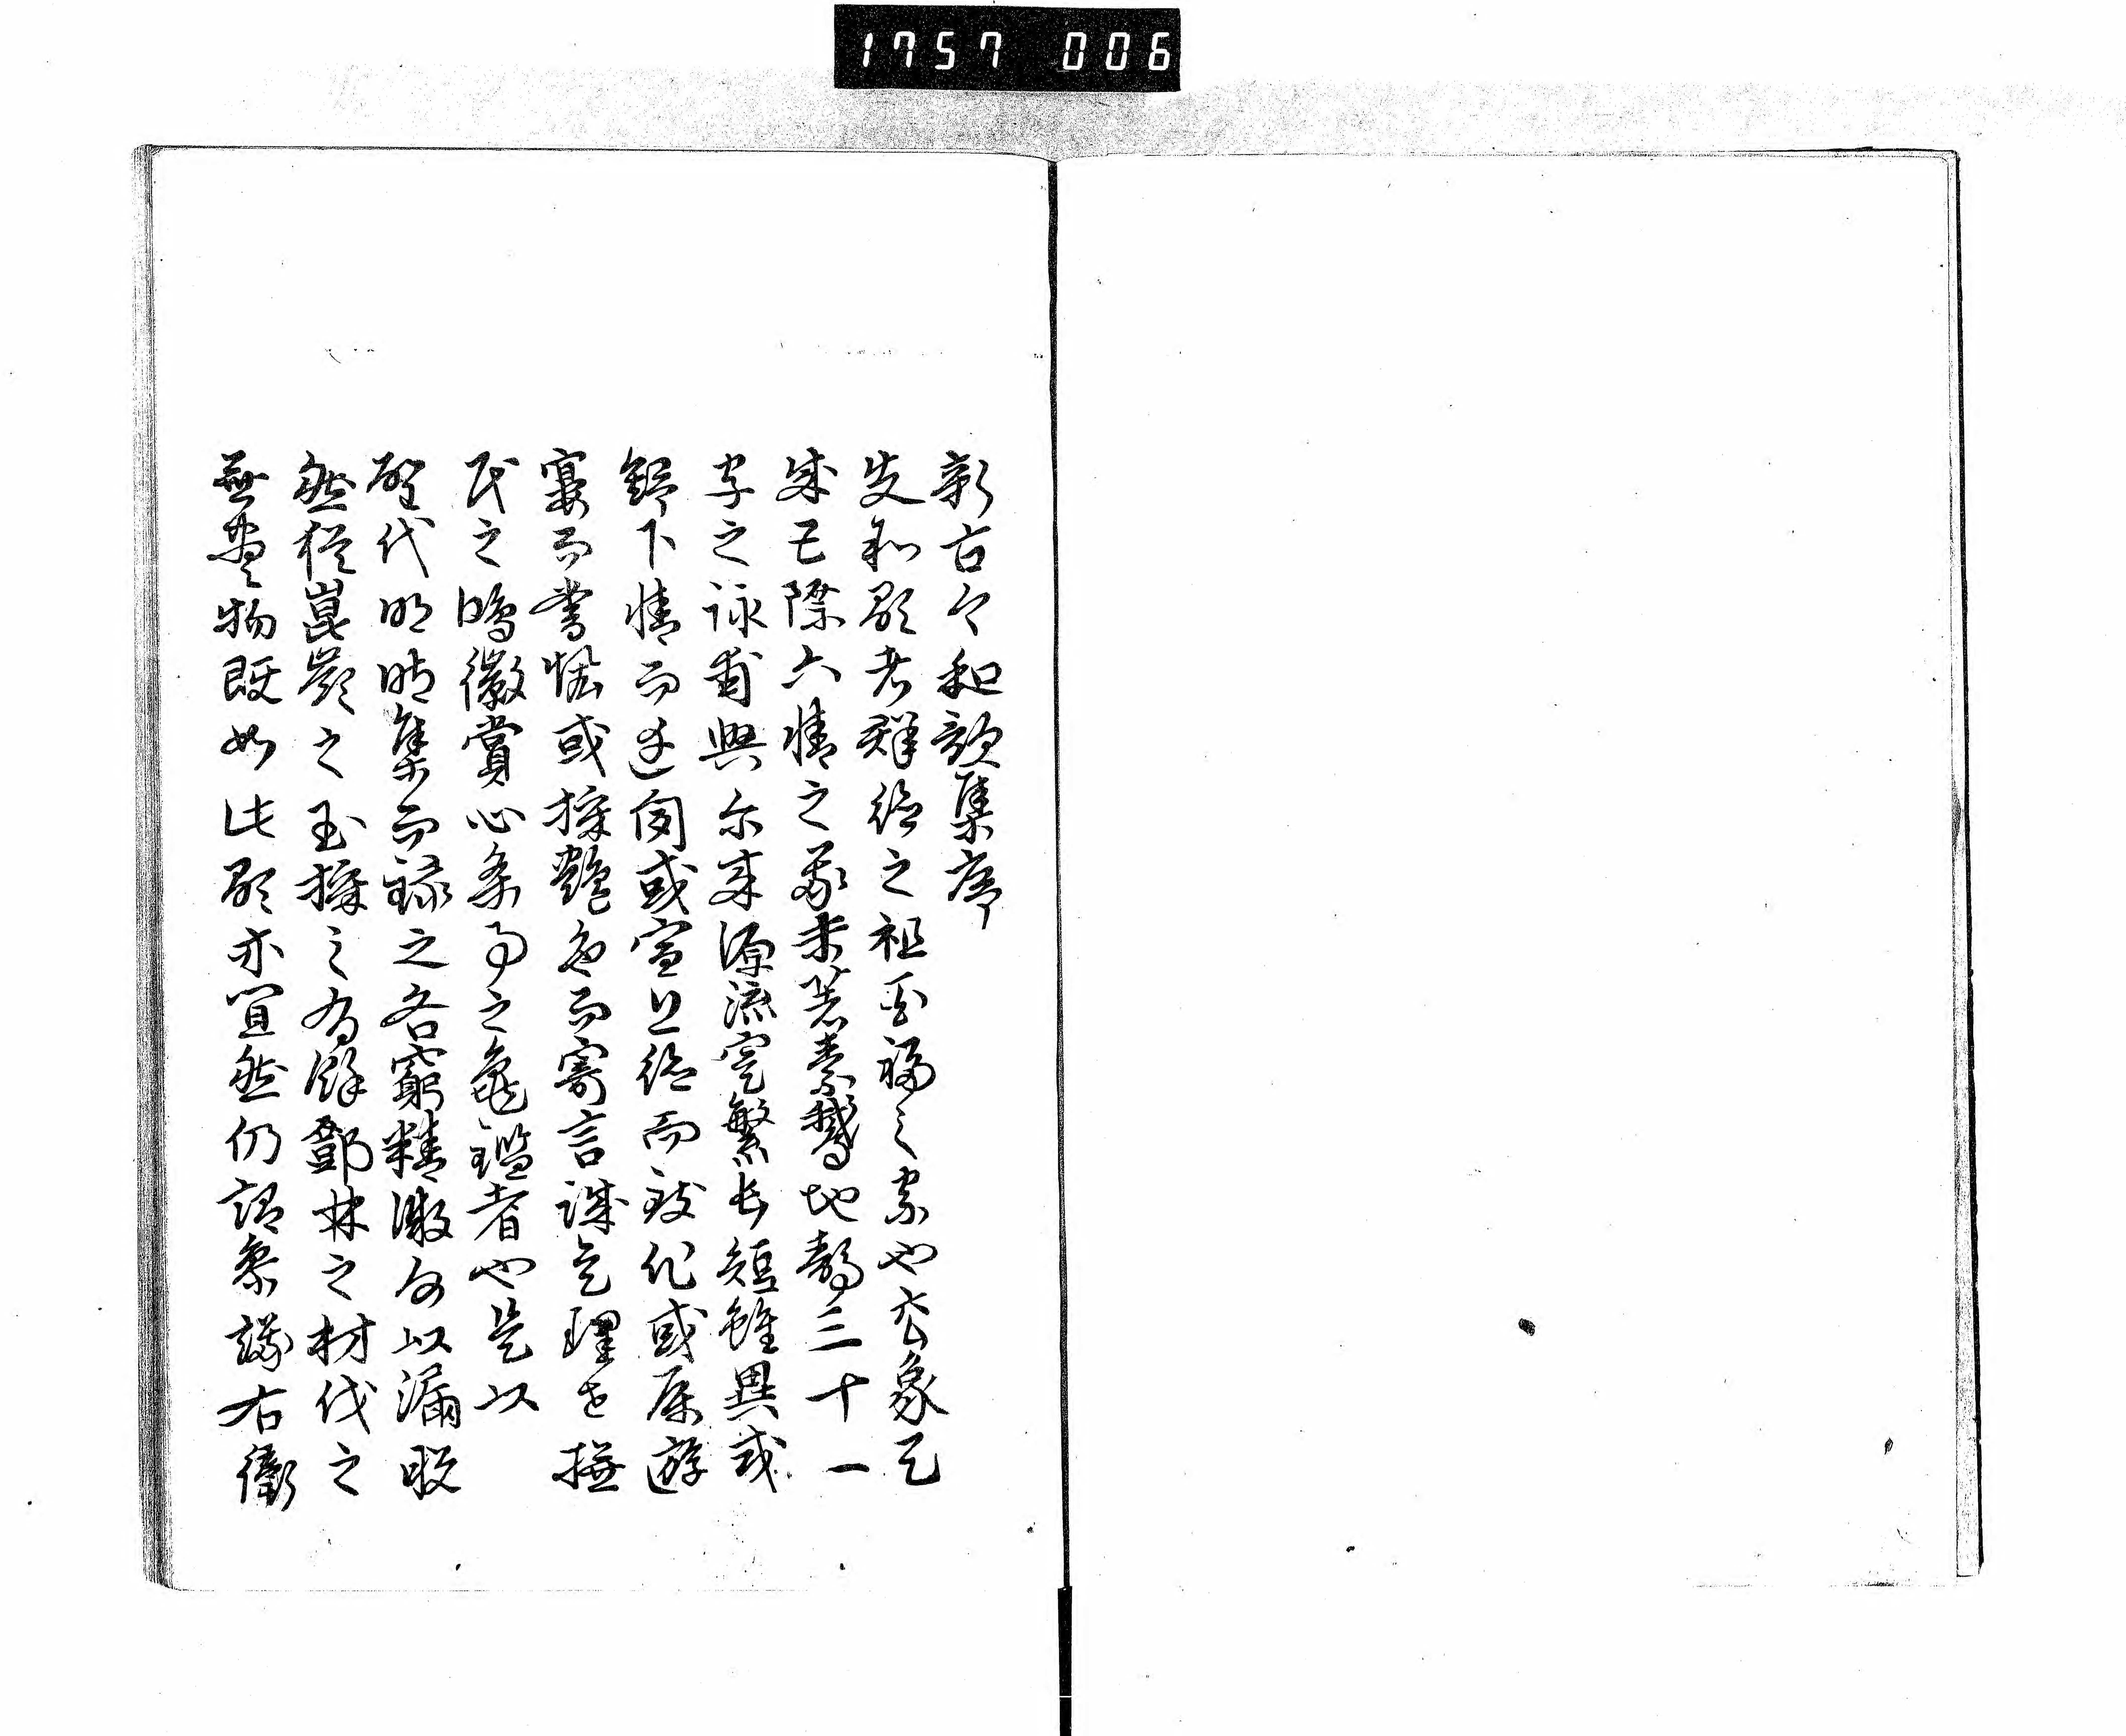 1757 006
新古今和歌集序
夫和歌者群徳之祖百福之宗也玄象天
成五際六情之義未著素鵞地静三十一
字之詠甫興尓来源流寔繁長短雖異或
舒下情而達聞或宣上徳而致化或属遊
宴而書懐或採艶色而寄言誠是理世撫
民之鴻徽賞心楽事之亀鑑者也是以
聖代明時集而録之各窮精微何以漏脱
然猶崑嶺之玉採之有餘鄧林之材伐之
無盡物既如此歌亦宜然仍詔参議右衛